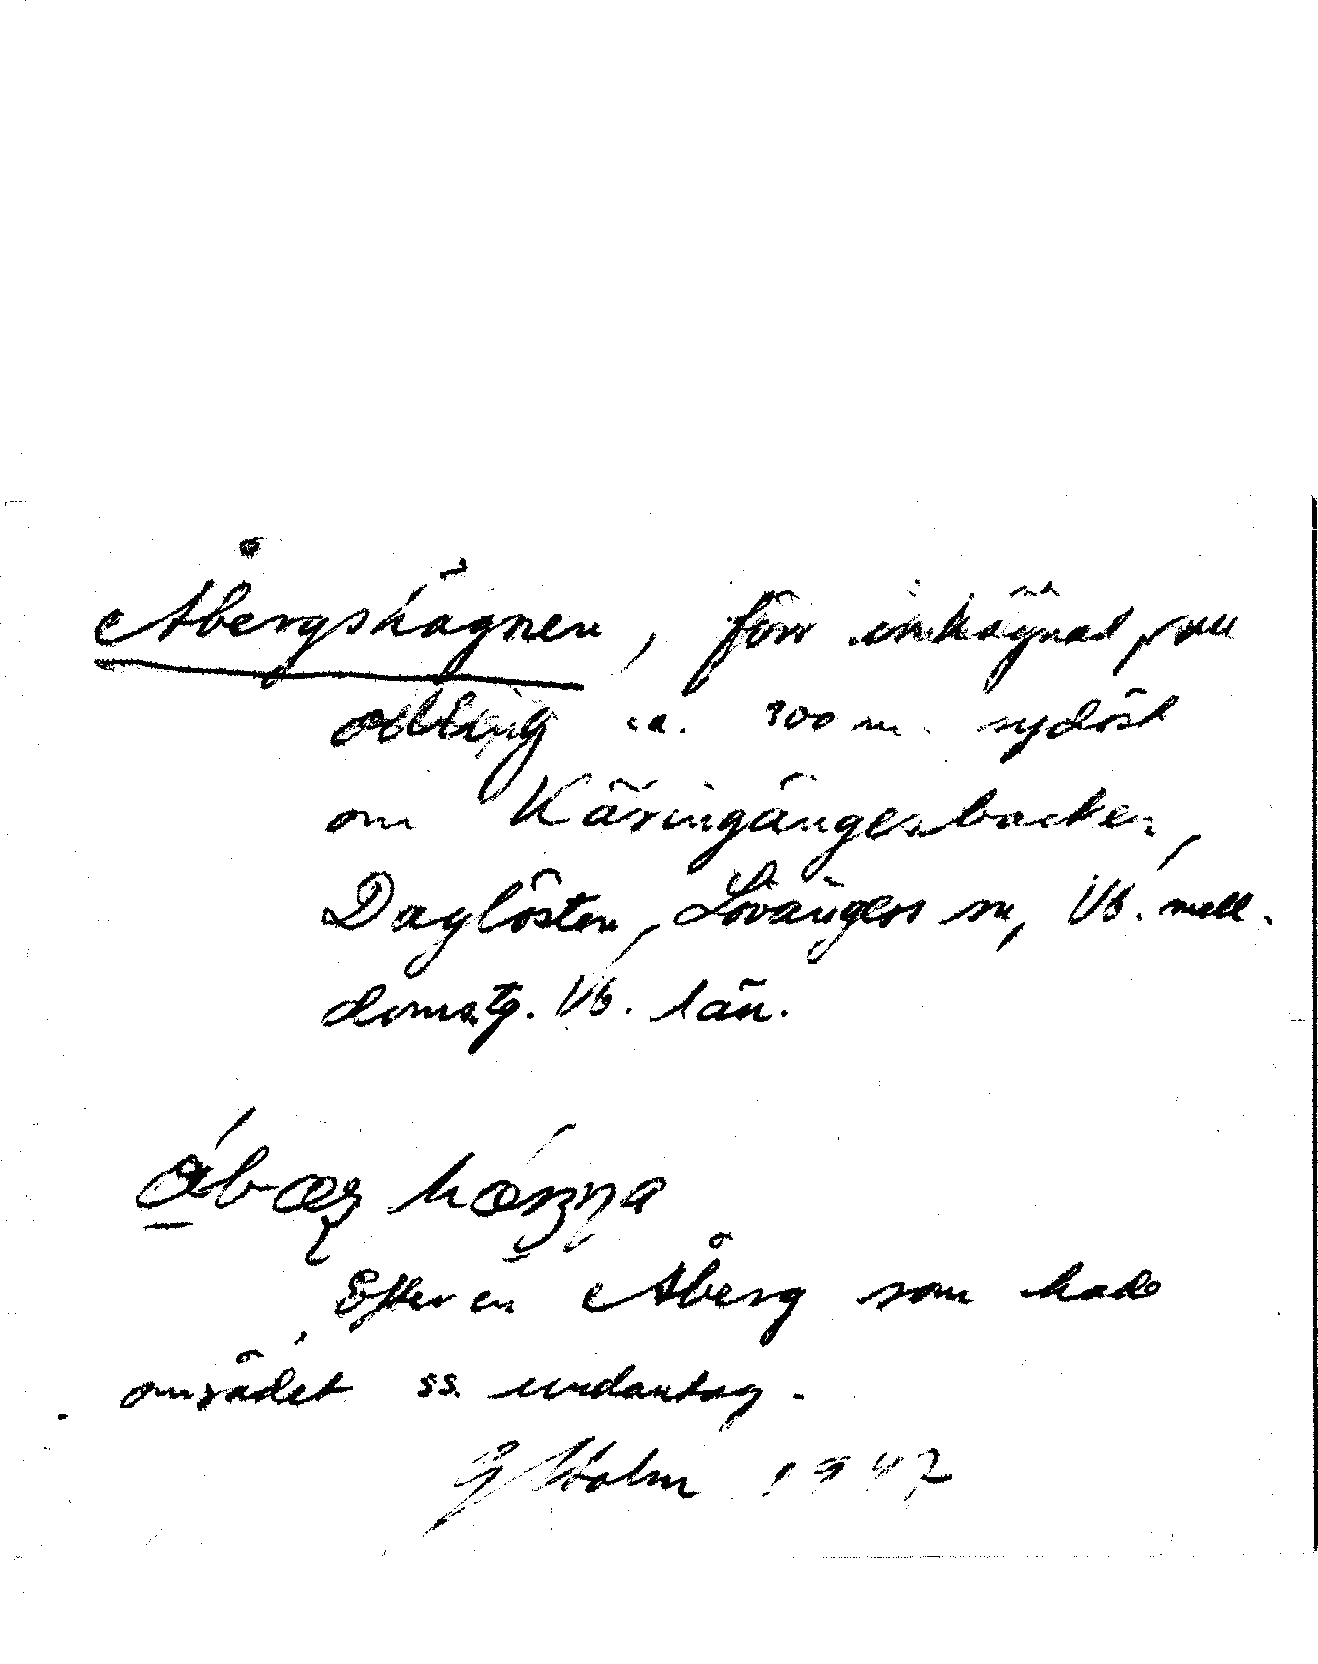 Åbergshägnen, förr inhägnad, nu
odling ca. 300 m. sydöst
om Käringängesbacken,
Daglösten, Lövångers sn, Vb. mell.
doms.tg. Vb. län.
Efter en Åberg som hade
området ss. undantag.
G Holm 1947